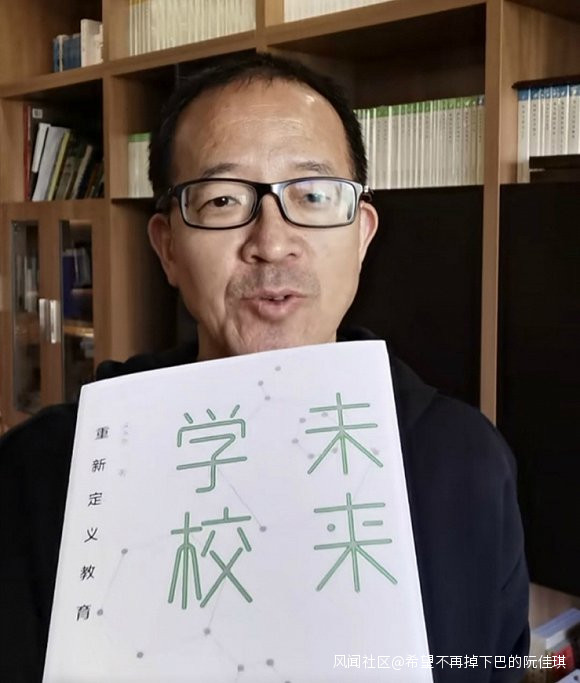 未来
学校
重新定义教育
风闻社区@希望不再掉下巴的阮佳琪